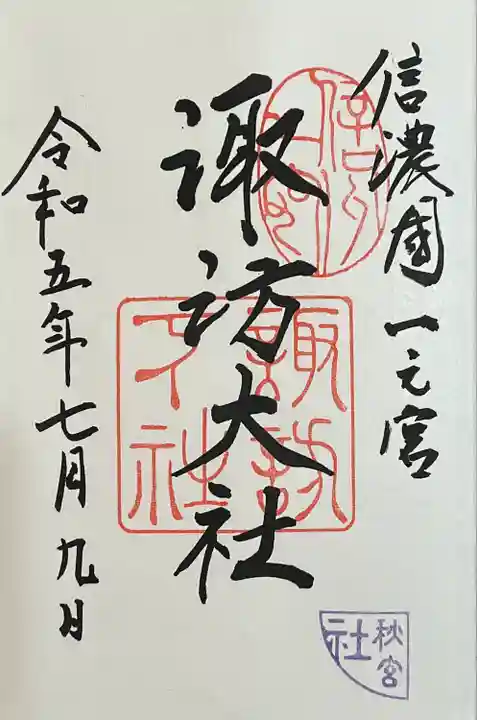 信濃國一之宮
諏訪大社
令和五年七月九日
諏訪
大社
秋宮
社